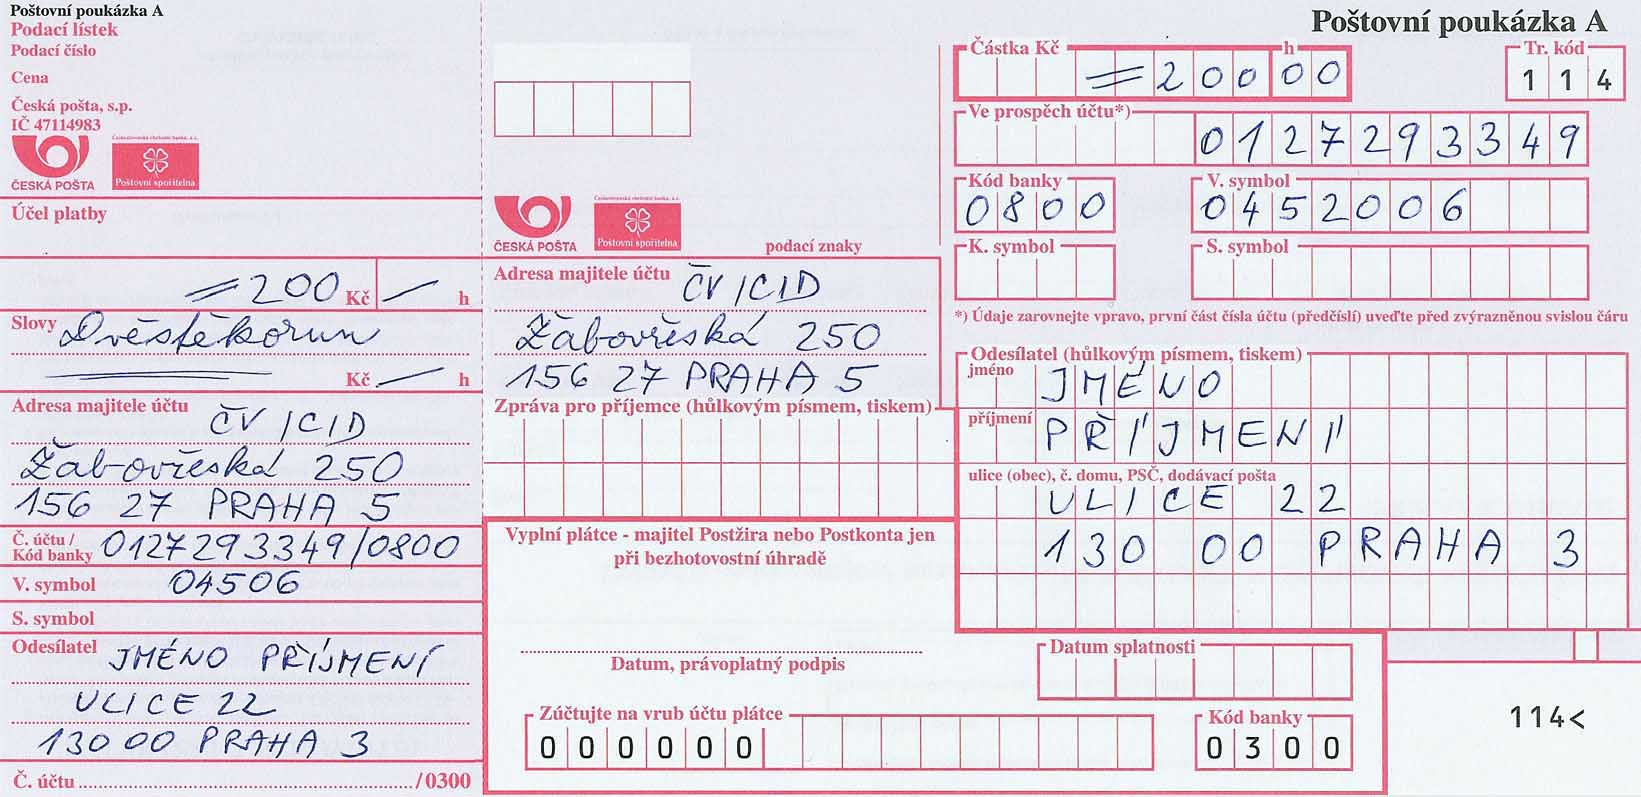 Poštovní poukázka A
Podací lístek
Podací číslo
Cena
Česká pošta, s.p.
IČ 47114983
Československá obchodní banka, a.s.
ČESKÁ POŠTA
Poštovní spořitelna
Účel platby
=200 Kč — h
Slovy Dvěstěkorun
Kč — h
Adresa majitele účtu
ČV/CID
Žabovřeská 250
156 27 PRAHA 5
Č. účtu /
Kód banky 0127293349/0800
V. symbol 04506
S. symbol
Odesílatel JMÉNO PŘÍJMENÍ
ULICE 22
130 00 PRAHA 3
Č. účtu ........ /0300
Československá obchodní banka, a.s.
ČESKÁ POŠTA
Poštovní spořitelna
podací znaky
Adresa majitele účtu
ČV/CID
Žabovřeská 250
156 27 PRAHA 5
Zpráva pro příjemce (hůlkovým písmem, tiskem)
Vyplní plátce - majitel Postžira nebo Postkonta jen
při bezhotovostní úhradě
Datum, právoplatný podpis
Zúčtujte na vrub účtu plátce
000000
Poštovní poukázka A
Částka Kč h
=200 00
Tr. kód
114
Ve prospěch účtu*)
0127293349
Kód banky
0800
V. symbol
0452006
K. symbol
S. symbol
*) Údaje zarovnejte vpravo, první část čísla účtu (předčíslí) uveďte před zvýrazněnou svislou čáru
Odesílatel (hůlkovým písmem, tiskem)
jméno JMÉNO
příjmení PŘÍJMENÍ
ulice (obec), č. domu, PSČ, dodávací pošta
ULICE 22
130 00 PRAHA 3
Datum splatnosti
Kód banky
0300
114<